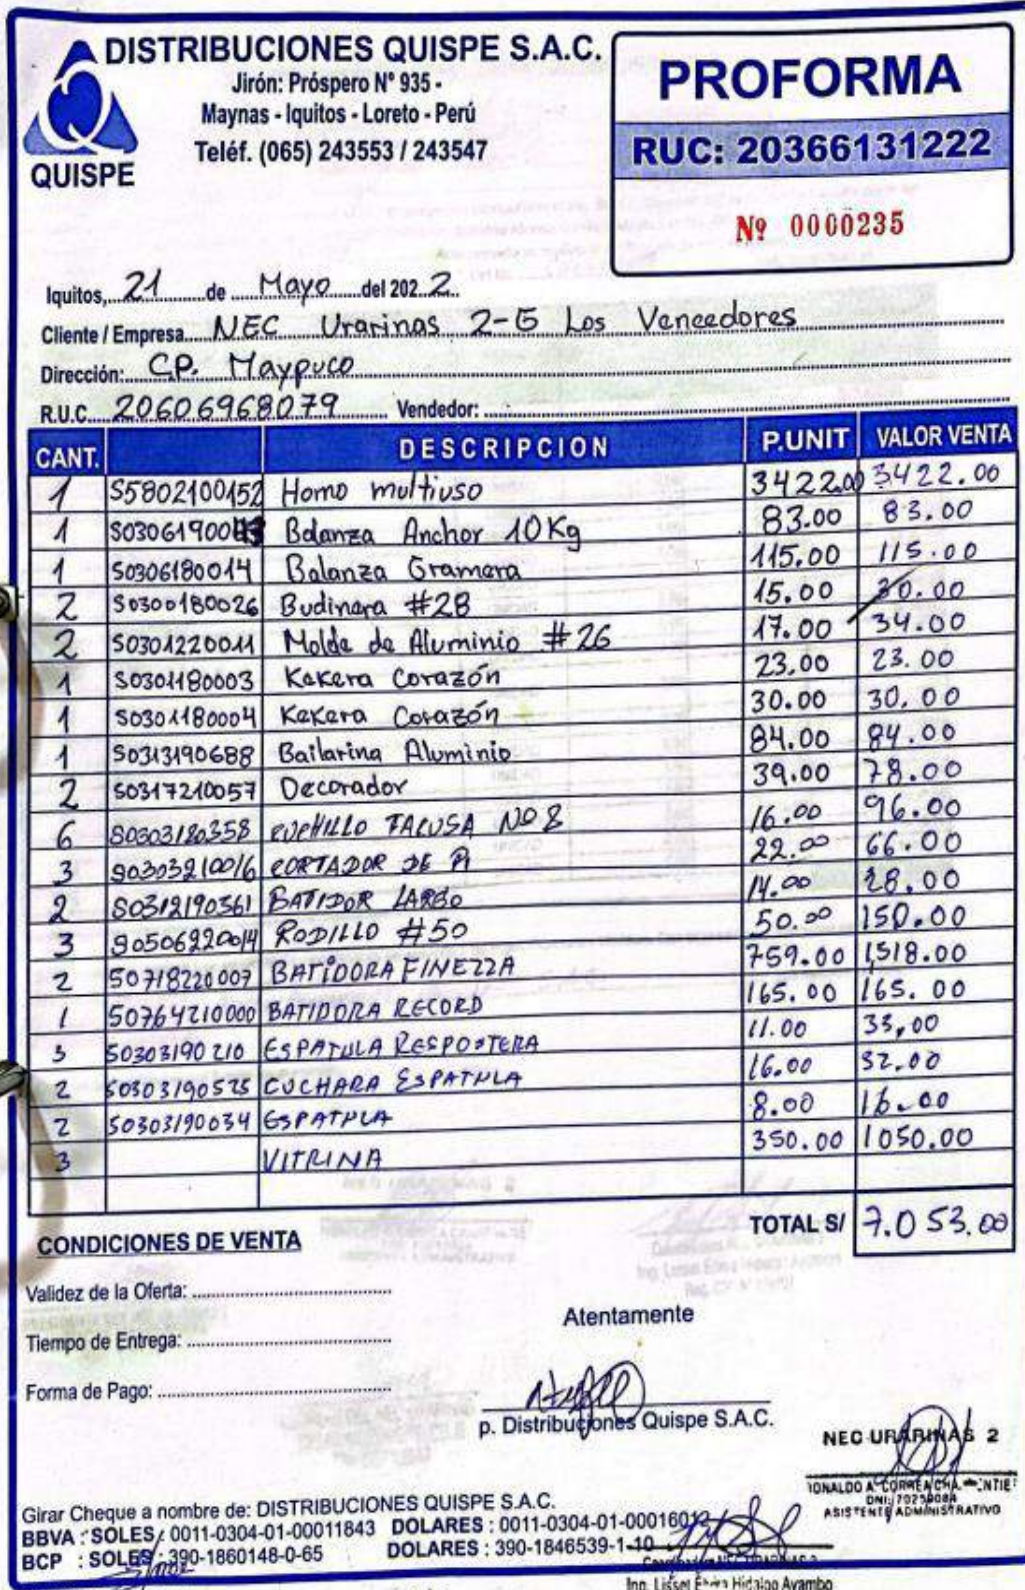 DISTRIBUCIONES QUISPE S.A.C.
Jirón: Próspero N° 935 -
Maynas - Iquitos - Loreto - Perú
Teléf. (065) 243553 / 243547
QUISPE
PROFORMA
RUC: 20366131222
Nº 0000235
Iquitos, 21 de Mayo del 2022
Cliente / Empresa NEC Urarinas 2-G Los Vencedores
Dirección: C.P. Maypuco
R.U.C. 20606968079 Vendedor:
CANT. DESCRIPCION P.UNIT VALOR VENTA
1 S5802100152 Horno multiuso 3422.00 3422.00
1 S0306190043 Balanza Anchor 10Kg 83.00 83.00
1 S0306180014 Balanza Gramera 115.00 115.00
2 S0300180026 Budinera #28 15.00 30.00
2 S0301220011 Molde de Aluminio #26 17.00 34.00
1 S0301180003 Kekera Corazón 23.00 23.00
1 S0301180004 Kekera Corazón 30.00 30.00
1 S0313190688 Bailarina Aluminio 84.00 84.00
2 S0317210057 Decorador 39.00 78.00
6 S0303180358 CUCHILLO FACUSA NO 8 16.00 96.00
3 S0303210016 CORTADOR DE PI 22.00 66.00
2 S0312190361 BATIDOR LARGO 14.00 28.00
3 S0506220014 RODILLO #50 50.00 150.00
2 50718220007 BATIDORA FINEZZA 759.00 1,518.00
1 50764210000 BATIDORA RECORD 165.00 165.00
3 50303190210 ESPATULA REPOSTERA 11.00 33,00
2 50303190525 CUCHARA ESPATULA 16.00 32.00
2 50303190034 ESPATULA 8.00 16.00
3 VITRINA 350.00 1050.00
TOTAL S/ 7.053.00
CONDICIONES DE VENTA
Validez de la Oferta:
Tiempo de Entrega:
Forma de Pago:
Atentamente
p. Distribuciones Quispe S.A.C.
NEC URARINAS 2
DNI: 70259084
ASISTENTE ADMINISTRATIVO
Girar Cheque a nombre de: DISTRIBUCIONES QUISPE S.A.C.
BBVA : SOLES : 0011-0304-01-00011843 DOLARES : 0011-0304-01-00016012
BCP : SOLES : 390-1860148-0-65 DOLARES : 390-1846539-1-10
Ing. Lisset Hidalgo Ayambo